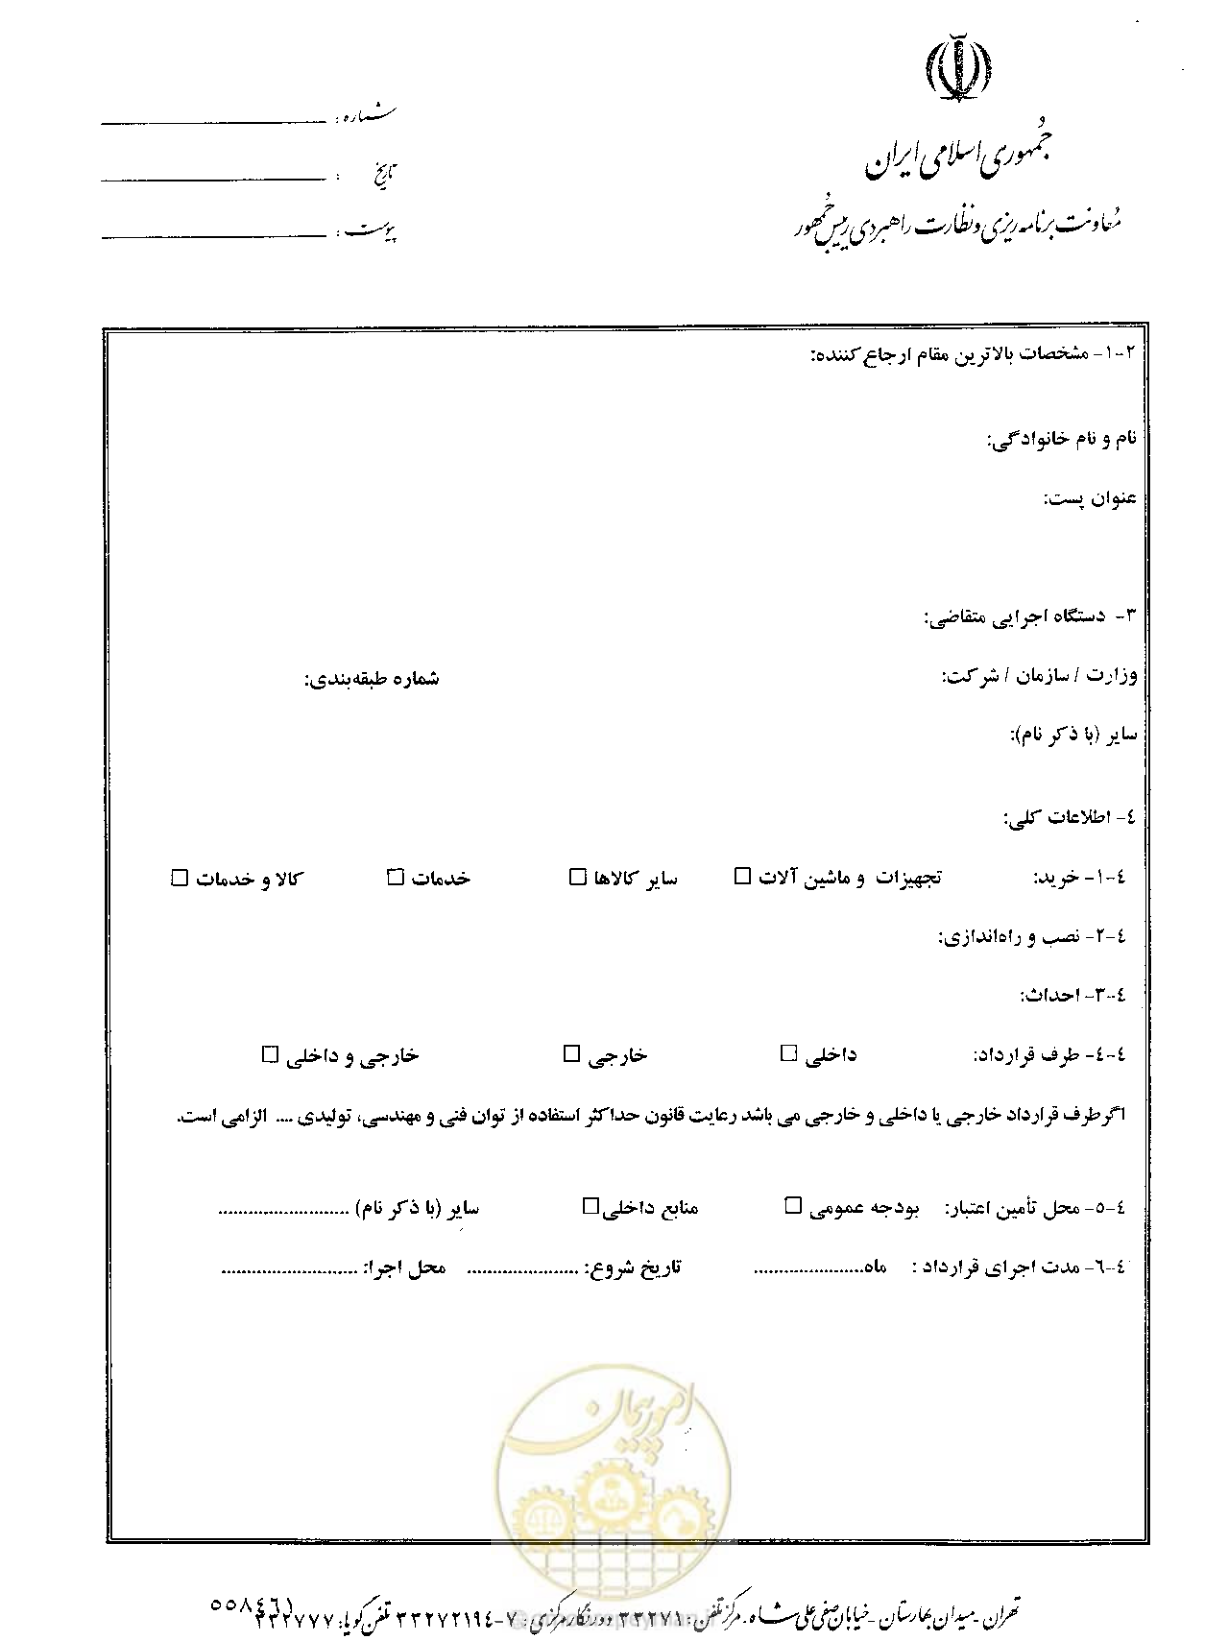 جمهوری اسلامی ایران
معاونت برنامه ریزی و نظارت راهبردی رییس جمهور
شماره :
تاریخ :
پیوست :
۲-۱- مشخصات بالاترین مقام ارجاع کننده:
نام و نام خانوادگی:
عنوان پست:
۳- دستگاه اجرایی متقاضی:
وزارت / سازمان / شرکت: شماره طبقه‌بندی:
سایر (با ذکر نام):
٤- اطلاعات کلی:
٤-۱- خرید: تجهیزات و ماشین آلات □ سایر کالاها □ خدمات □ کالا و خدمات □
٤-۲- نصب و راه‌اندازی:
٤-۳- احداث:
٤-٤- طرف قرارداد: داخلی □ خارجی □ خارجی و داخلی □
اگرطرف قرارداد خارجی یا داخلی و خارجی می باشد رعایت قانون حداکثر استفاده از توان فنی و مهندسی، تولیدی .... الزامی است.
٤-٥- محل تأمین اعتبار: بودجه عمومی □ منابع داخلی □ سایر (با ذکر نام) ..........................
٤-٦- مدت اجرای قرارداد : ماه...................... تاریخ شروع: ...................... محل اجرا: ...........................
امور پیمان
تهران - میدان بهارستان - خیابان صفی علی شاه. مرکز تلفن : ۳۳۲۷۱ دورنگار مرکزی : ۷-۳۳۲۷۲۱۹٤ تلفن گویا: